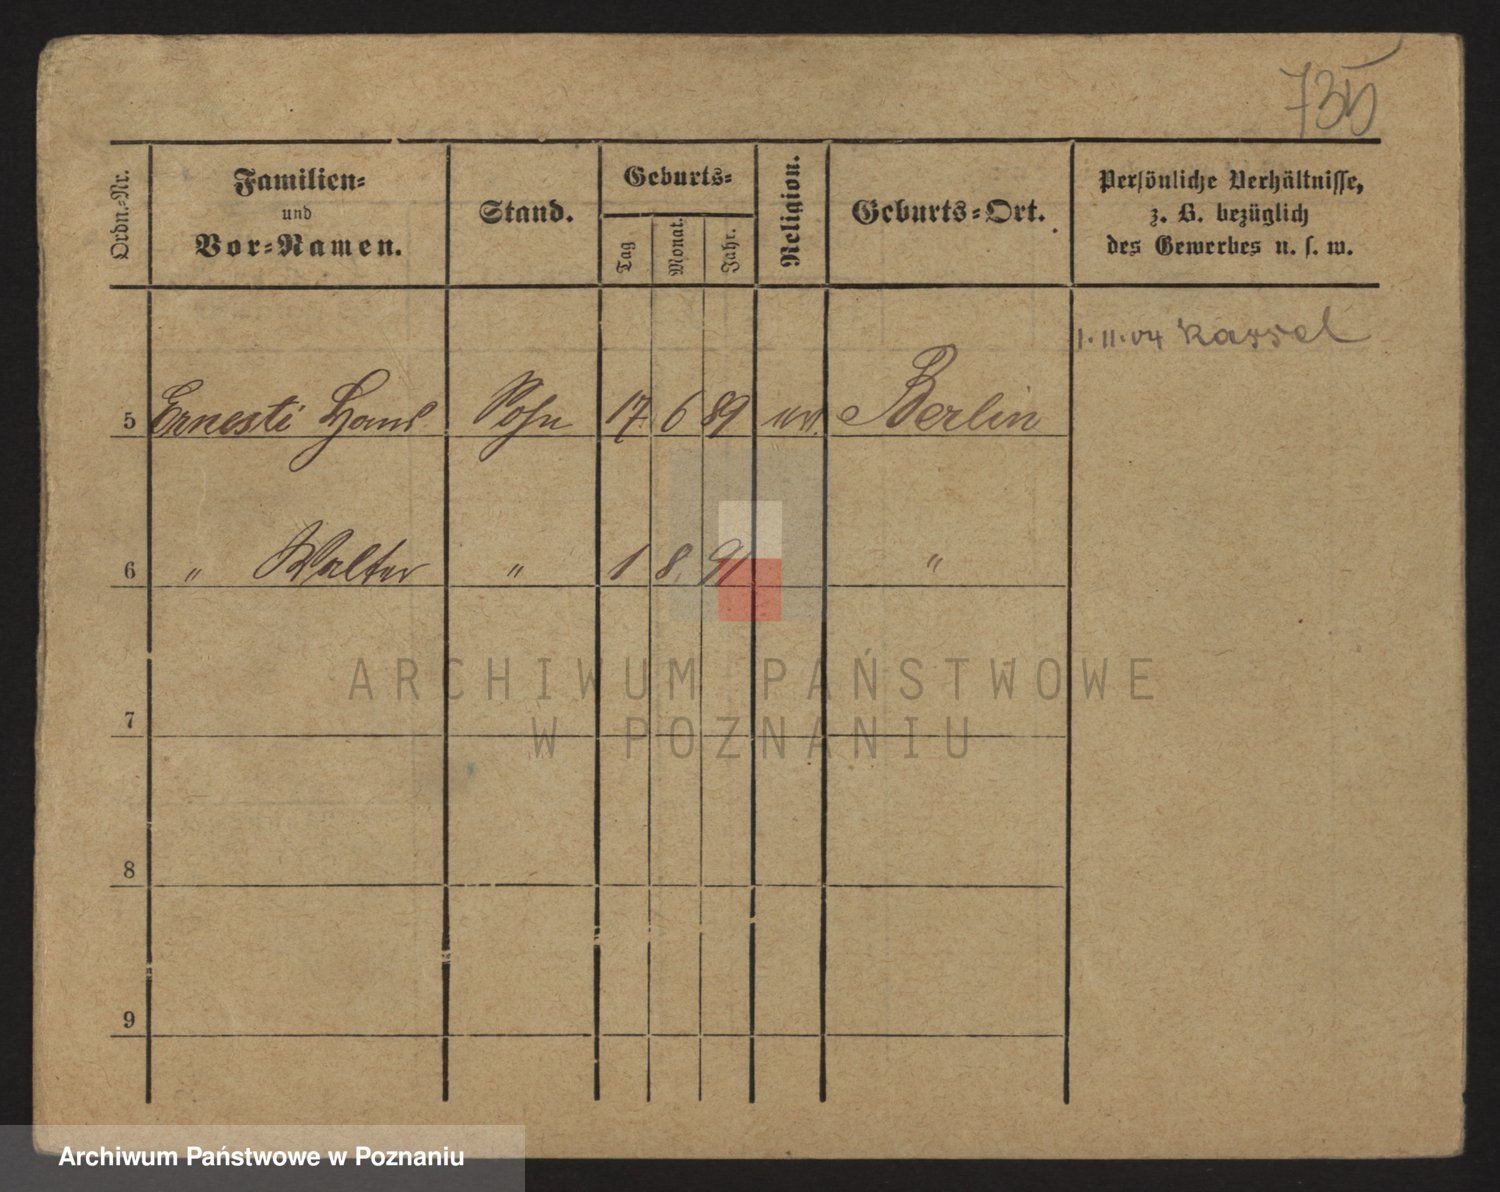 735
Ordn.-Nr.
Familien-
und
Vor-Namen.
Stand.
Geburts-
Tag
Monat.
Jahr.
Religion.
Geburts-Ort.
Persönliche Verhältnisse,
z. B. bezüglich
des Gewerbes u. s. w.
1.11.04 Kassel
5 Ernesti Hans Sohn 17. 6 89 ev. Berlin
6 " Walter " 1 8. 91 "
7
8
9
ARCHIWUM PAŃSTWOWE
W POZNANIU
Archiwum Państwowe w Poznaniu